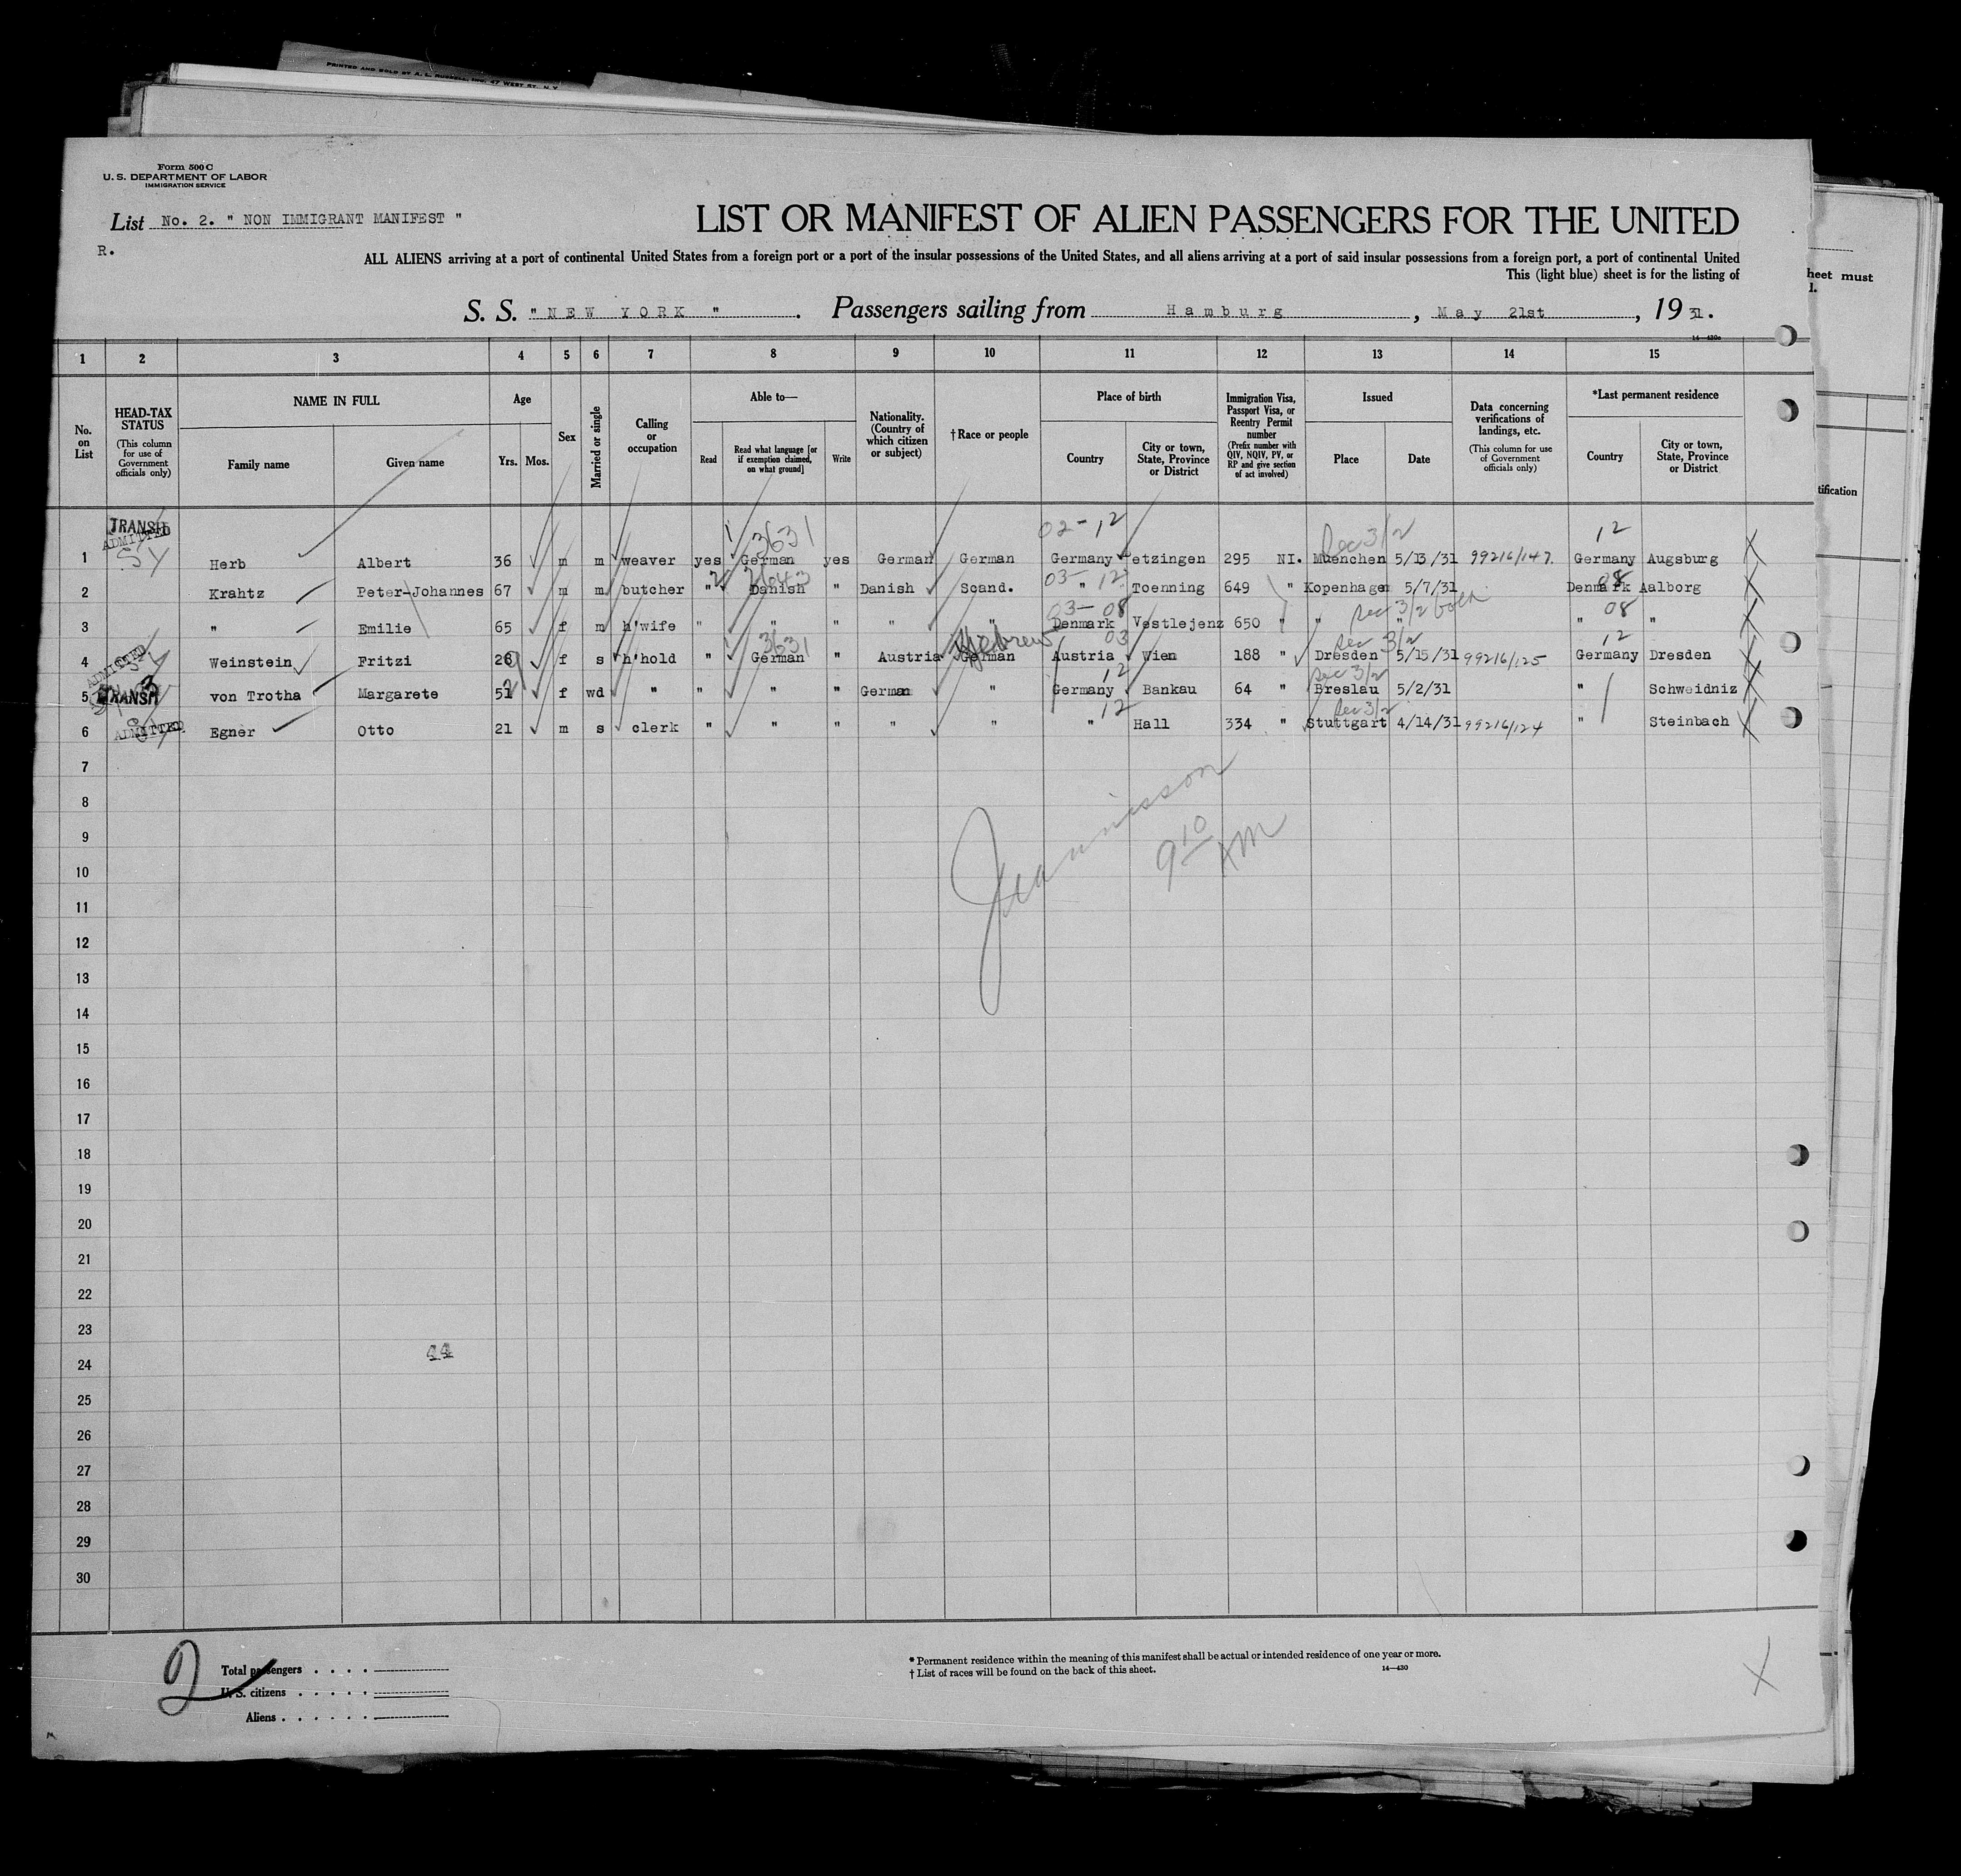 PRINTED AND SOLD BY A. L. RUSSELL, INC. 47 WEST ST. N.Y.
Form 500 C
U. S. DEPARTMENT OF LABOR
IMMIGRATION SERVICE
List No. 2. " NON IMMIGRANT MANIFEST "
R.
LIST OR MANIFEST OF ALIEN PASSENGERS FOR THE UNITED
ALL ALIENS arriving at a port of continental United States from a foreign port or a port of the insular possessions of the United States, and all aliens arriving at a port of said insular possessions from a foreign port, a port of continental United
This (light blue) sheet is for the listing of
heet must
S. S. " NEW YORK " . Passengers sailing from Hamburg , May 21st , 19 31.
14—430c
1 2 3 4 5 6 7 8 9 10 11 12 13 14 15
No. on List
HEAD-TAX STATUS (This column for use of Government officials only)
NAME IN FULL Family name Given name
Age Yrs. Mos.
Sex
Married or single
Calling or occupation
Able to— Read Read what language [or if exemption claimed, on what ground] Write
Nationality. (Country of which citizen or subject)
†Race or people
Place of birth Country City or town, State, Province or District
Immigration Visa, Passport Visa, or Reentry Permit number (Prefix number with QIV, NQIV, PV, or RP and give section of act involved)
Issued Place Date
Data concerning verifications of landings, etc. (This column for use of Government officials only)
*Last permanent residence Country City or town, State, Province or District
tification
TRANSIT ADMITTED 3631 02-12 Sec 3/2 12
1 Herb Albert 36 m m weaver yes German yes German German Germany etzingen 295 NI. Muenchen 5/13/31 99216/147 Germany Augsburg
2643 03- 12 08
2 Krahtz Peter-Johannes 67 m m butcher " Danish " Danish Scand. " Toenning 649 " Kopenhagen 5/7/31 Denmark Aalborg
03- 08 Sec 3/2 both 08
3 " Emilie 65 f m h'wife " " " " " Denmark Vestlejenz 650 " " " " "
ADMITTED 3631 Hebrew 03 Sec 3/2 12
4 Weinstein Fritzi 26 f s h'hold " German " Austria German Austria Wien 188 " Dresden 5/15/31 99216/125 Germany Dresden
TRANSIT 12 Sec 3/2
5 von Trotha Margarete 51 f wd " " " " German " Germany Bankau 64 " Breslau 5/2/31 " Schweidniz
ADMITTED 12 Sec 3/2
6 Egner Otto 21 m s clerk " " " " " " Hall 334 " Stuttgart 4/14/31 99216/124 " Steinbach
7
8
9
9 10 AM
10
11
12
13
14
15
16
17
18
19
20
21
22
23
44
24
25
26
27
28
29
30
2
Total passengers
U. S. citizens
Aliens
* Permanent residence within the meaning of this manifest shall be actual or intended residence of one year or more.
† List of races will be found on the back of this sheet. 14—430
X